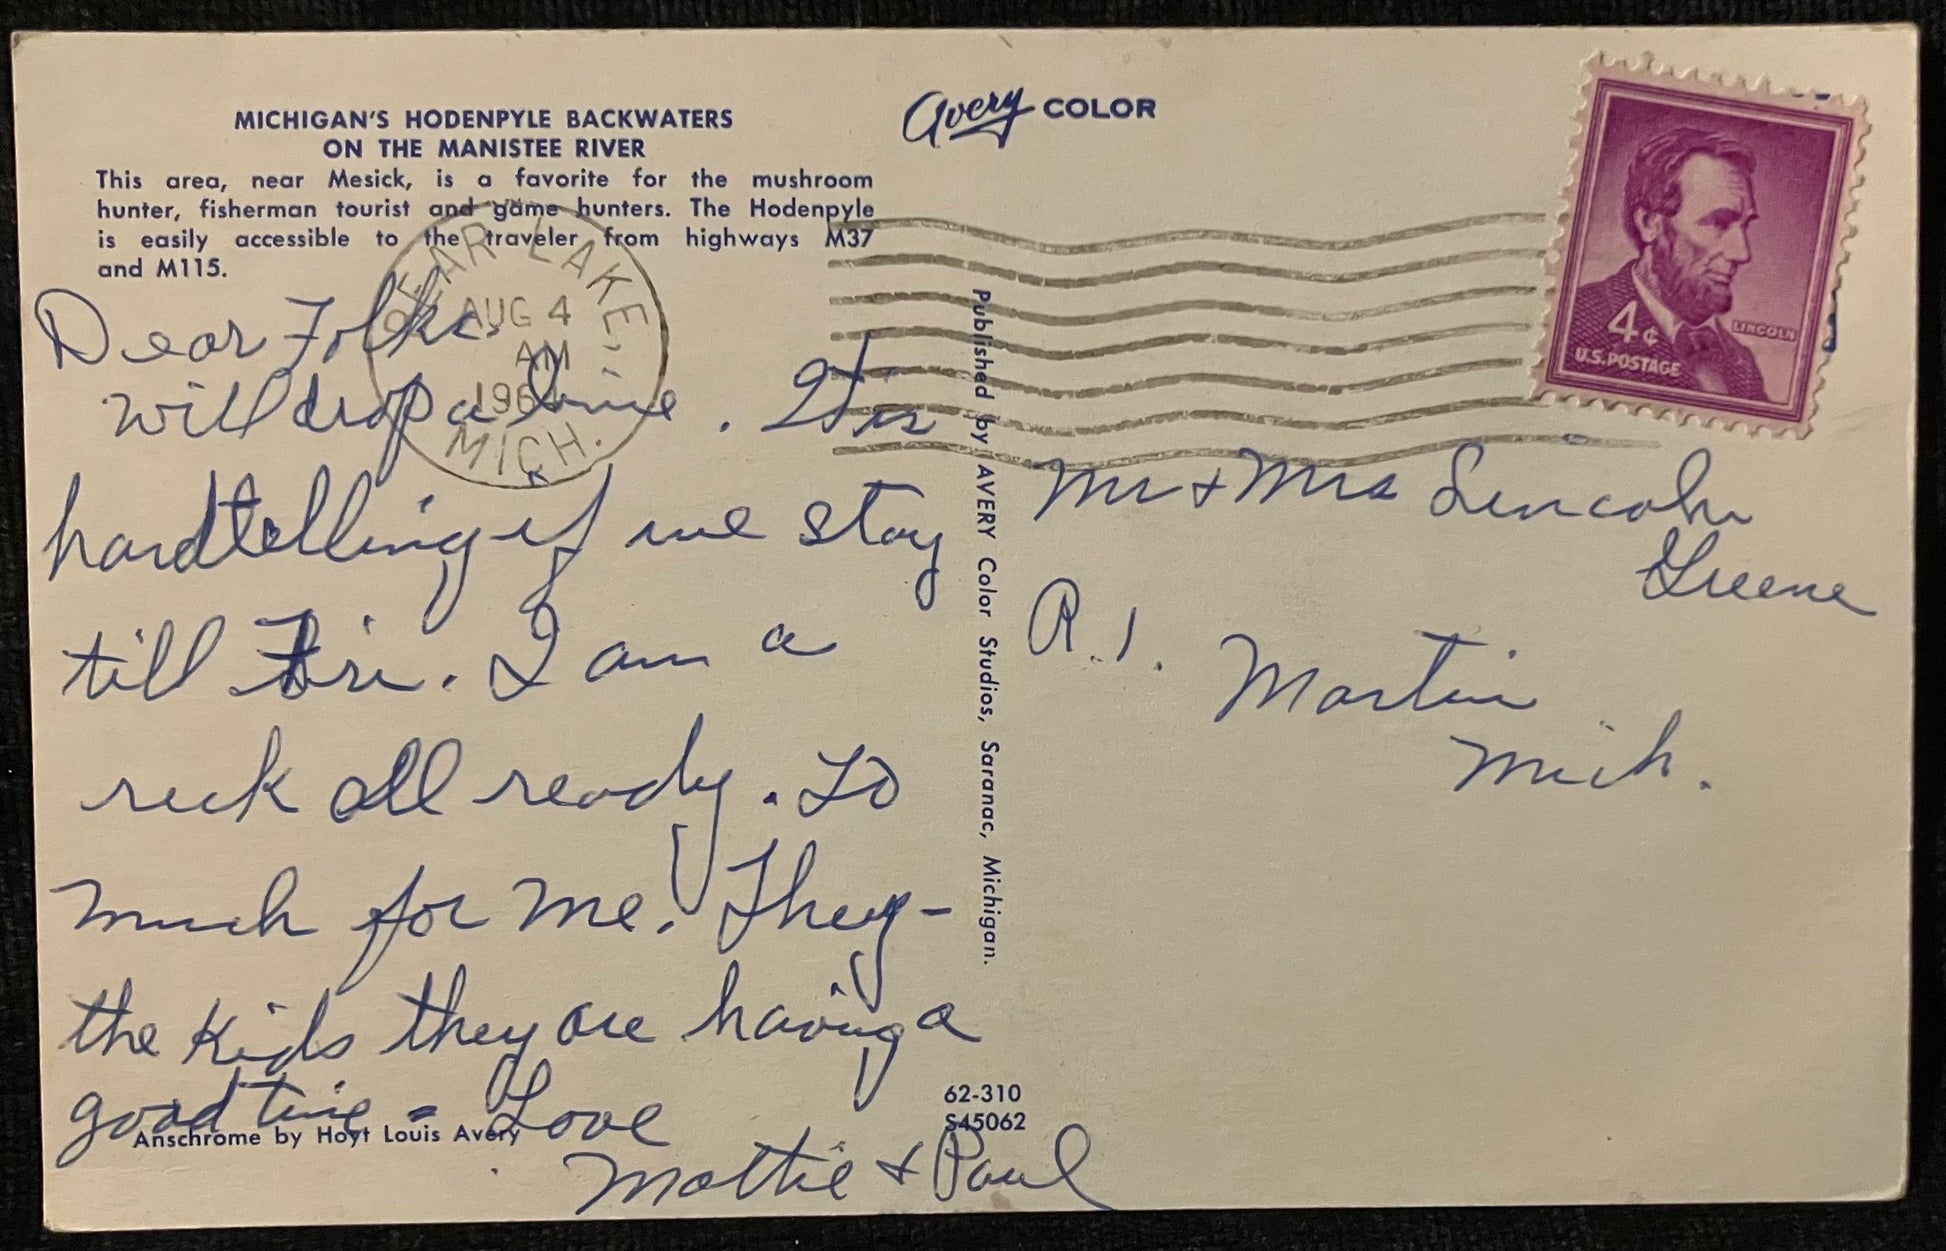 MICHIGAN'S HODENPYLE BACKWATERS
ON THE MANISTEE RIVER
This area, near Mesick, is a favorite for the mushroom
hunter, fisherman tourist and game hunters. The Hodenpyle
is easily accessible to the traveler from highways M37
and M115.
Avery COLOR
BEAR LAKE,
AUG 4
AM
MICH.
4¢
LINCOLN
U.S. POSTAGE
Dear Folks
will drop a line. It is
hard telling if we stay
till Fri. I am a
reck all ready. To
much for me! They-
the Kids they are having a
good time - Love
Mattie + Paul
Published by AVERY Color Studios, Saranac, Michigan.
Mr + Mrs Lincoln
Greene
R. 1.
Martin
Mich.
62-310
S45062
Anschrome by Hoyt Louis Avery